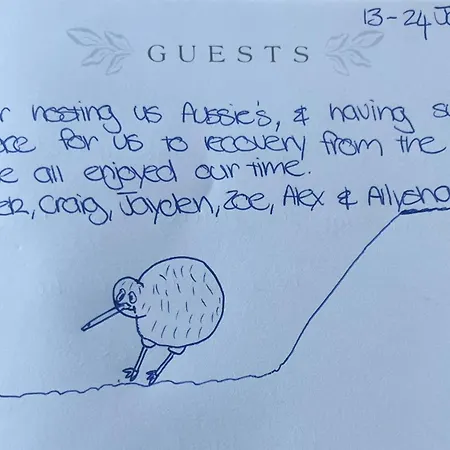 13-24 Ja
GUESTS
r hosting us Aussie's, & having su
ce for us to recovery from the
e all enjoyed our time.
Craig, Jayden, Zoe, Alex & Allysha